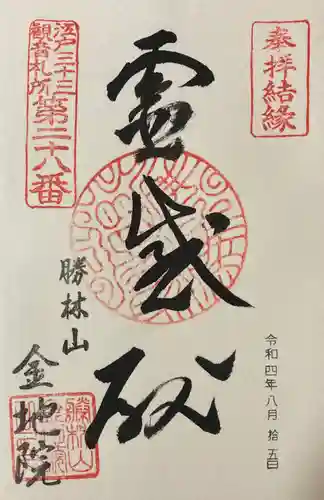 奉拝結縁
令和四年八月拾五日
霊感殿
江戸三十三
観音札所
第二十八番
勝林山
金地院